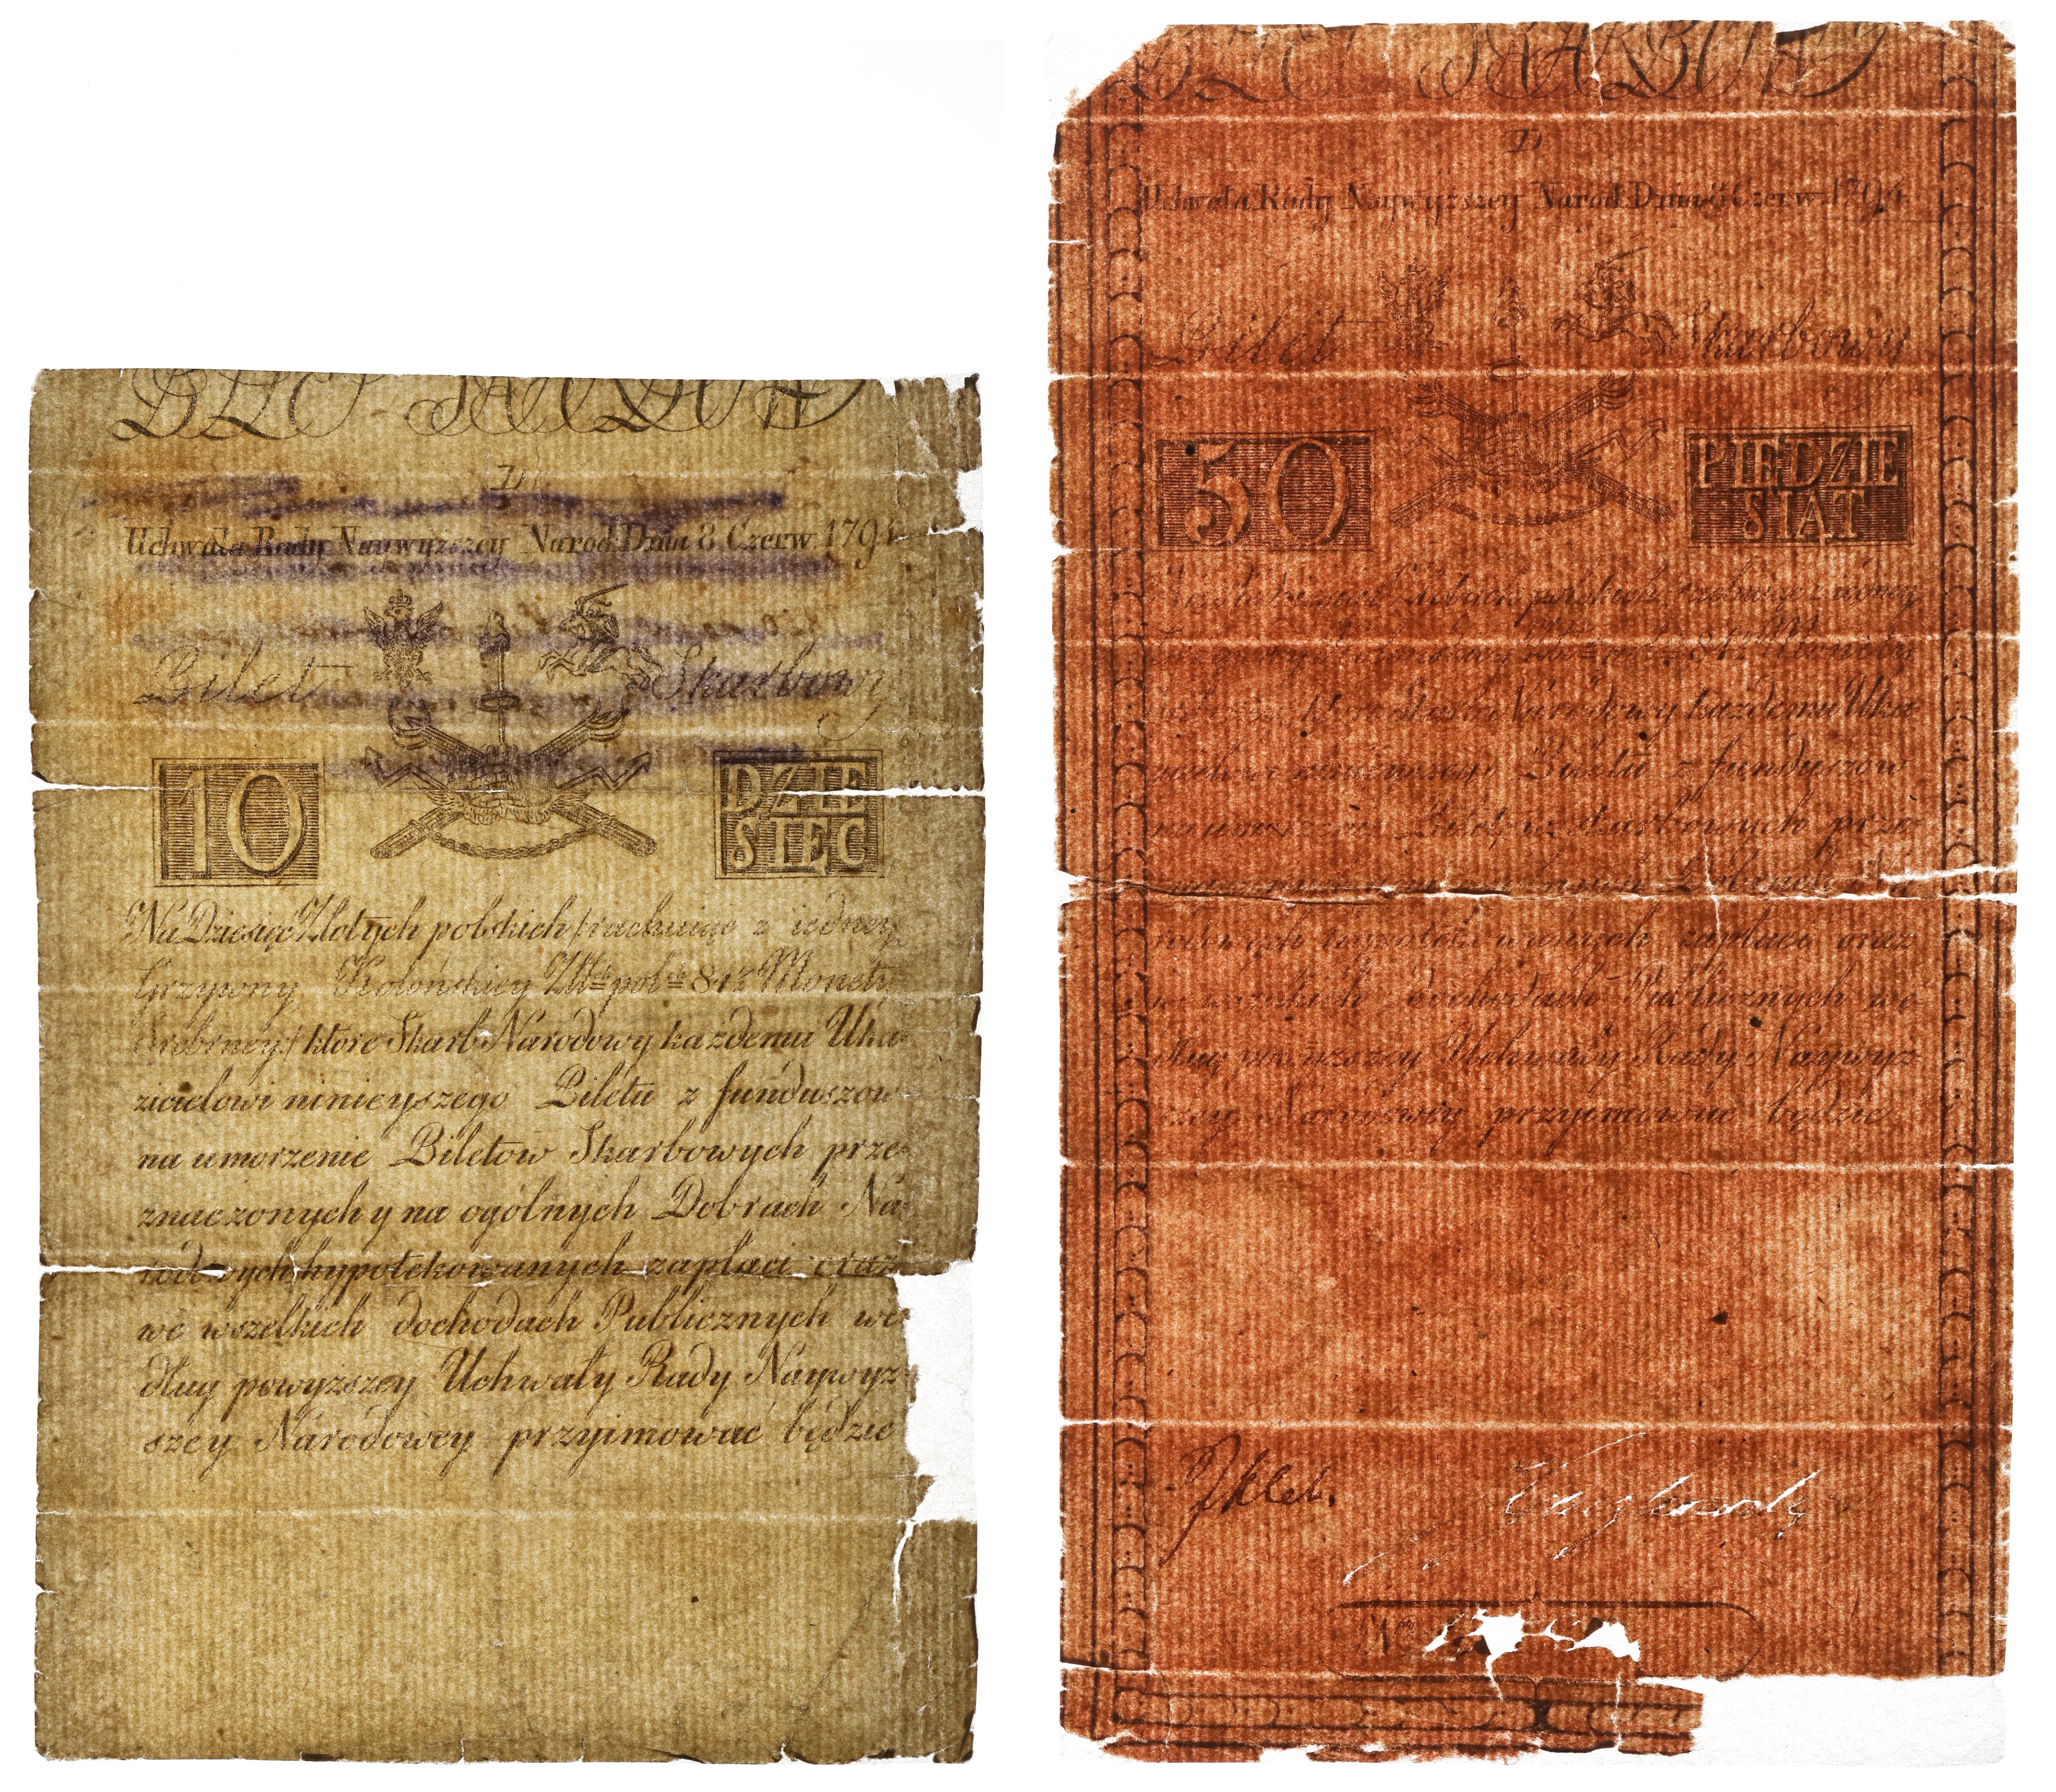 D
Uchwała Rady Naywyższey Narod. Dnia 8 Czerw. 1794
Bilet Skarbowy
10
DZIE
SIĘC
Na Dziesięć Złotych polskich /rachuiąc z iedney
Grzywny Kolońskiey Złł pol 84½ Monety
Srebrney/ które Skarb Narodowy każdemu Uka-
zicielowi ninieyszego Biletu z funduszow
na umorzenie Biletow Skarbowych prze-
znaczonych y na ogólnych Dobrach Na-
rodowych hypotekowanych zapłaci oraz
we wszelkich dochodach Publicznych we-
dług powyższey Uchwały Rady Naywyż-
szey Narodowey przyimować będzie
D
Uchwała Rady Naywyższey Narod. Dnia 8 Czerw. 1794
Bilet Skarbowy
50
PIĘDZIE
SIĄT
Złotych polskich /rachuiąc z iedney
84½ Monety
które Skarb Narodowy każdemu Uka-
zicielowi ninieyszego Biletu z funduszow
na umorzenie Biletow Skarbowych prze-
Dobrach Na-
rodowych hypotekowanych zapłaci oraz
we wszelkich dochodach Publicznych we-
dług powyższey Uchwały Rady Naywyż-
szey Narodowey przyimować będzie